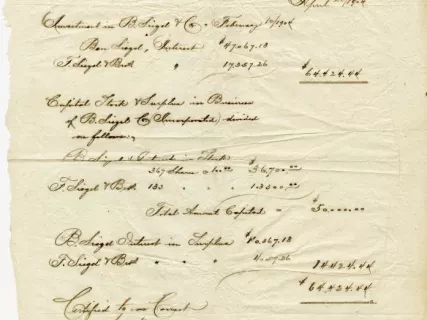 April 1904
Investment in B. Siegel & Co. February 1st/1904
Ben Siegel, Interest $47067.18
F. Siegel & Bro " 17,357.26
$64,424.44
Capital Stock & Surplus in Business
of B. Siegel Co (Incorporated) divided
as follows,
B. Siegel Interest in Stock
367 Share @100.00 $36,700.00
F. Siegel & Bro 133 " " 13,300.00
Total Amount Capital " $50,000.00
B. Siegel Interest in Surplus $10,367.18
F. Siegel & Bro " " " 4,057.26
14424.44
$64,424.44
Certified to as Correct